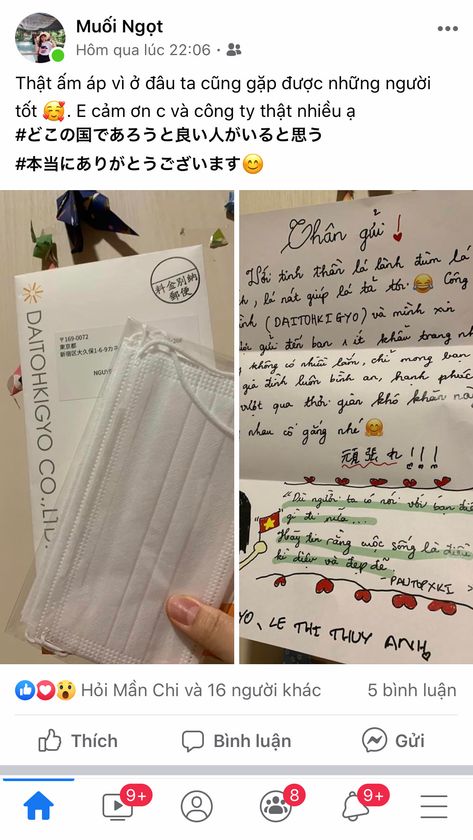 Muối Ngọt
Hôm qua lúc 22:06
Thật ấm áp vì ở đâu ta cũng gặp được những người
tốt 🥰. E cảm ơn c và công ty thật nhiều ạ
#どこの国であろうと良い人がいると思う
#本当にありがとうございます😊
料金別納
郵便
DAITOHKIGYO CO.,LTD.
〒169-0072
東京都
新宿区大久保1-6-9カネ
NGUY
Thân gửi!
Với tinh thần lá lành đùm lá
, lá nát giúp lá tả tơi 😂 Công
(DAITOHKIGYO) và mình xin
gửi đến bạn 1 ít khẩu trang
không có nhiều lắm, chỉ mong bạn
gia đình luôn bình an, hạnh phúc
vượt qua thời gian khó khăn này
nhau cố gắng nhé 🤗
頑張れ!!!
"Dù người ta có nói với bạn điều
gì đi nữa...
Hãy tin rằng cuộc sống là điều
kì diệu và đẹp đẽ.
- PAUTOPXKI
YO, LE THI THUY ANH
Hỏi Mần Chi và 16 người khác
5 bình luận
Thích
Bình luận
Gửi
9+
8
9+